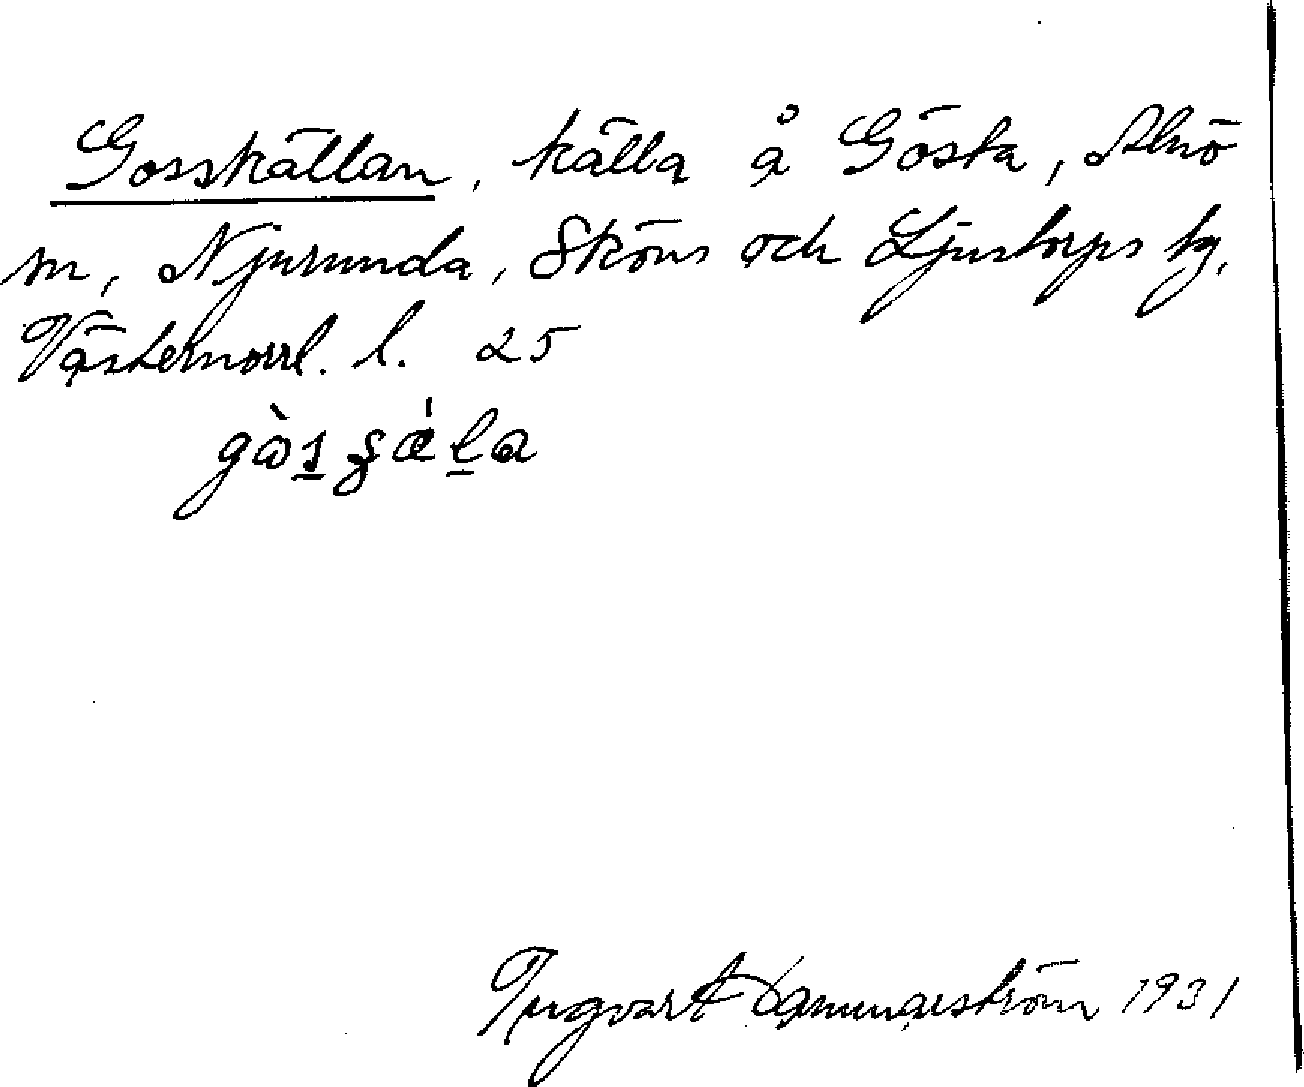 Gosskällan, källa å Gösta, Alnö
sn, Njurunda, Sköns och Ljustorps tg,
Västernorrl. l. 25
Ingvart Hammarström 1931